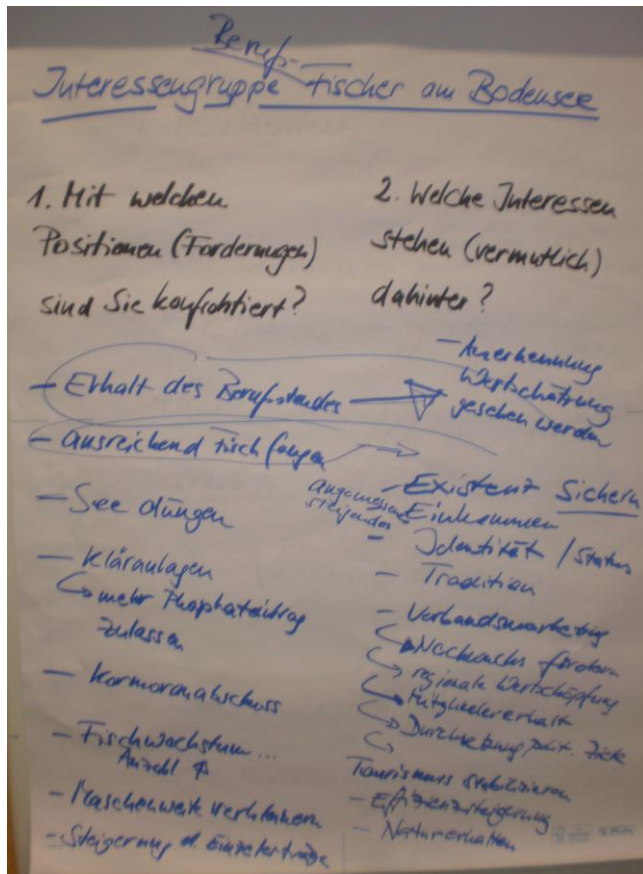 Berufs-
Interessengruppe Fischer am Bodensee
1. Mit welchen
Positionen (Forderungen)
sind Sie konfrontiert?
- Erhalt des Berufsstandes
- ausreichend Fisch fangen
- See düngen
- Kläranlagen
mehr Phosphateintrag
zulassen
- Kormoranabschuss
- Fischwachstum...
Anzahl
- Maschenweite verkleinern
- Steigerung d. Einzelerträge
2. Welche Interessen
stehen (vermutlich)
dahinter?
- Anerkennung
Wertschätzung
gesehen werden
- Existenz sichern
angemessenes
steigendes
Einkommen
- Identität / Status
- Tradition
- Verbandsmarketing
Nachwuchs fördern
regionale Wertschöpfung
Mitgliedererhalt
Durchsetzung polit. Ziele
Tourismus stabilisieren
- Effizienzsteigerung
- Natur erhalten